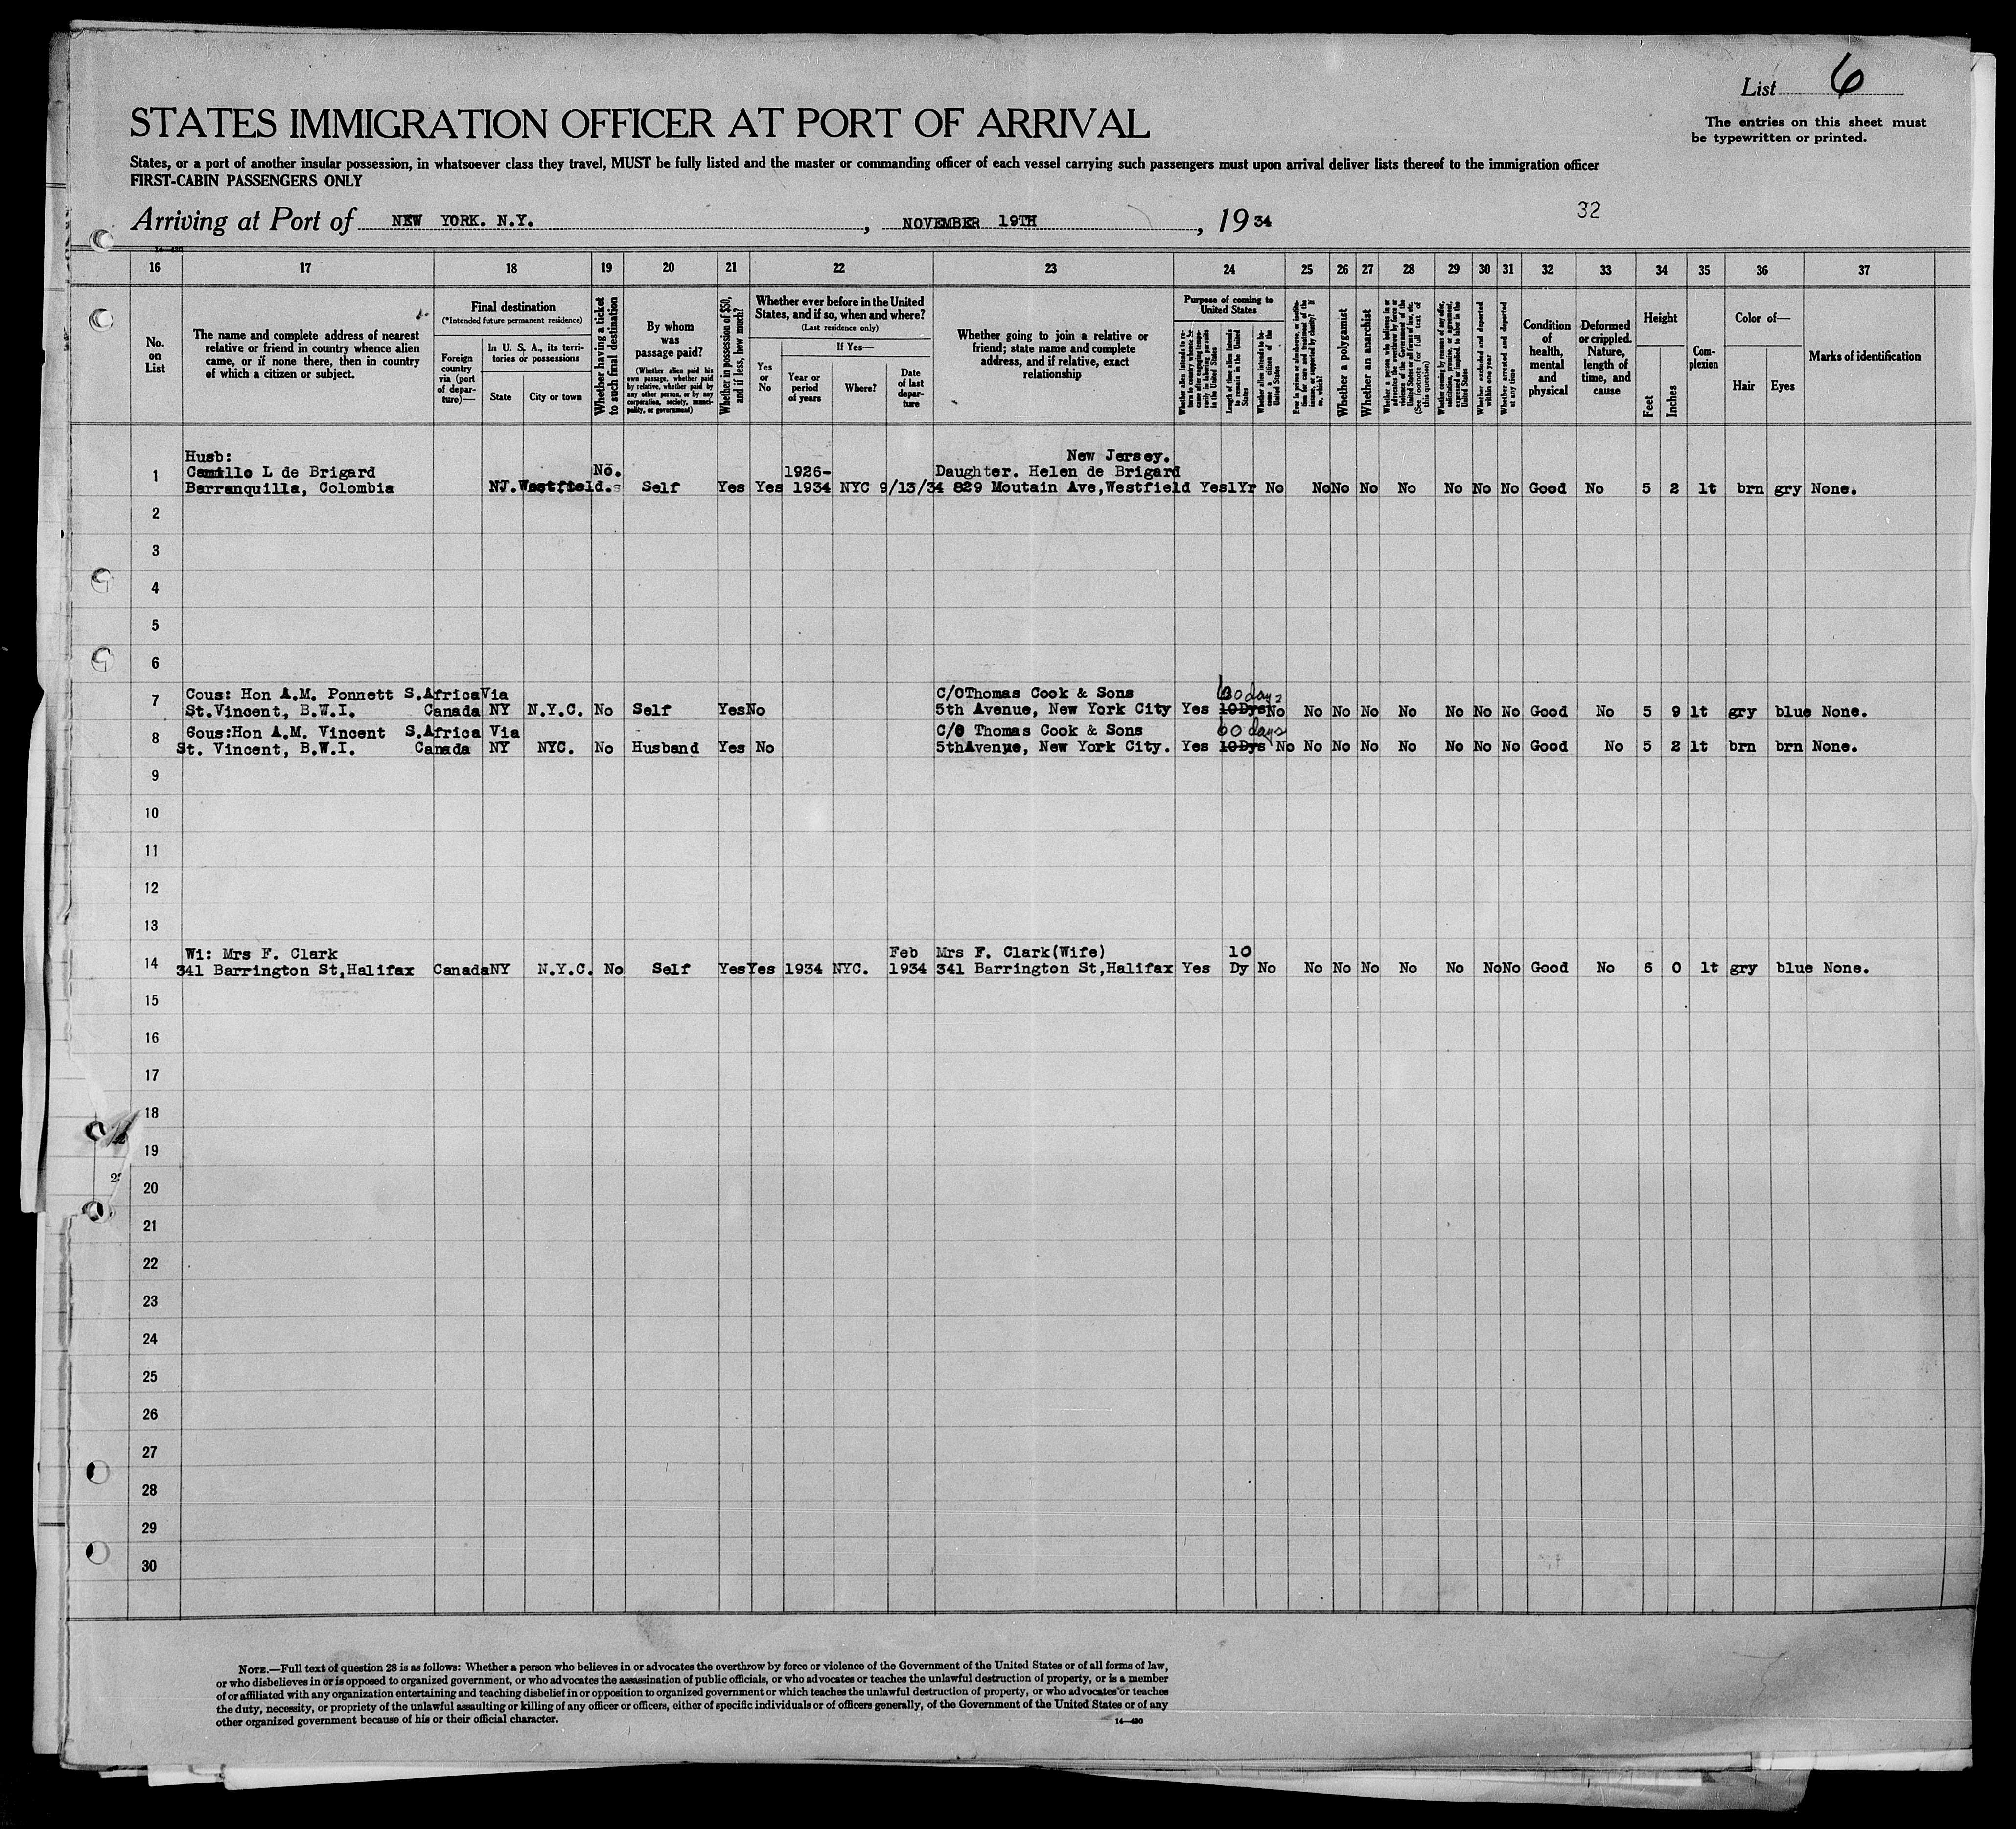 List 6
STATES IMMIGRATION OFFICER AT PORT OF ARRIVAL
The entries on this sheet must
be typewritten or printed.
States, or a port of another insular possession, in whatsoever class they travel, MUST be fully listed and the master or commanding officer of each vessel carrying such passengers must upon arrival deliver lists thereof to the immigration officer
FIRST-CABIN PASSENGERS ONLY
Arriving at Port of NEW YORK. N.Y. , NOVEMBER 19TH , 19 34
32
14—430
16 17 18 19 20 21 22 23 24 25 26 27 28 29 30 31 32 33 34 35 36 37
No.
on
List
The name and complete address of nearest
relative or friend in country whence alien
came, or if none there, then in country
of which a citizen or subject.
Final destination
(*Intended future permanent residence)
Foreign
country
via (port
of depar-
ture)—
In U. S. A., its terri-
tories or possessions
State
City or town
Whether having a ticket
to such final destination
By whom
was
passage paid?
(Whether alien paid his
own passage, whether paid
by relative, whether paid by
any other person, or by any
corporation, society, munici-
pality, or government)
Whether in possession of $50,
and if less, how much?
Whether ever before in the United
States, and if so, when and where?
(Last residence only)
Yes
or
No
If Yes—
Year or
period
of years
Where?
Date
of last
depar-
ture
Whether going to join a relative or
friend; state name and complete
address, and if relative, exact
relationship
Purpose of coming to
United States
Length of time alien intends
to remain in the United
States
Whether alien intends to be-
come a citizen of the
United States
Whether a polygamist
Whether an anarchist
(See footnote for full text of
this question)
Whether excluded and deported
within one year
Whether arrested and deported
at any time
Condition
of
health,
mental
and
physical
Deformed
or crippled.
Nature,
length of
time, and
cause
Height
Feet
Inches
Com-
plexion
Color of—
Hair
Eyes
Marks of identification
Husb: New Jersey.
Camillo L de Brigard No. 1926- Daughter. Helen de Brigard
1 Barranquilla, Colombia NJ. Westfield. Self Yes Yes 1934 NYC 9/13/34 829 Moutain Ave,Westfield Yes 1Yr No No No No No No No No Good No 5 2 lt brn gry None.
2
3
4
5
6
Cous: Hon A.M. Ponnett S.Africa Via C/O Thomas Cook & Sons 60 days
7 St.Vincent, B.W.I. Canada NY N.Y.C. No Self Yes No 5th Avenue, New York City Yes 10Dys No No No No No No No No Good No 5 9 lt gry blue None.
Cous:Hon A.M. Vincent S.Africa Via C/O Thomas Cook & Sons 60 days
8 St. Vincent, B.W.I. Canada NY NYC. No Husband Yes No 5thAvenue, New York City. Yes 10Dys No No No No No No No No Good No 5 2 lt brn brn None.
9
10
11
12
13
Wi: Mrs F. Clark Feb Mrs F. Clark(Wife) 10
14 341 Barrington St,Halifax Canada NY N.Y.C. No Self Yes Yes 1934 NYC. 1934 341 Barrington St,Halifax Yes Dy No No No No No No No No Good No 6 0 lt gry blue None.
15
16
17
18
19
20
21
22
23
24
25
26
27
28
29
30
NOTE.—Full text of question 28 is as follows: Whether a person who believes in or advocates the overthrow by force or violence of the Government of the United States or of all forms of law,
or who disbelieves in or is opposed to organized government, or who advocates the assassination of public officials, or who advocates or teaches the unlawful destruction of property, or is a member
of or affiliated with any organization entertaining and teaching disbelief in or opposition to organized government or which teaches the unlawful destruction of property, or who advocates or teaches
the duty, necessity, or propriety of the unlawful assaulting or killing of any officer or officers, either of specific individuals or of officers generally, of the Government of the United States or of any
other organized government because of his or their official character.
14—430